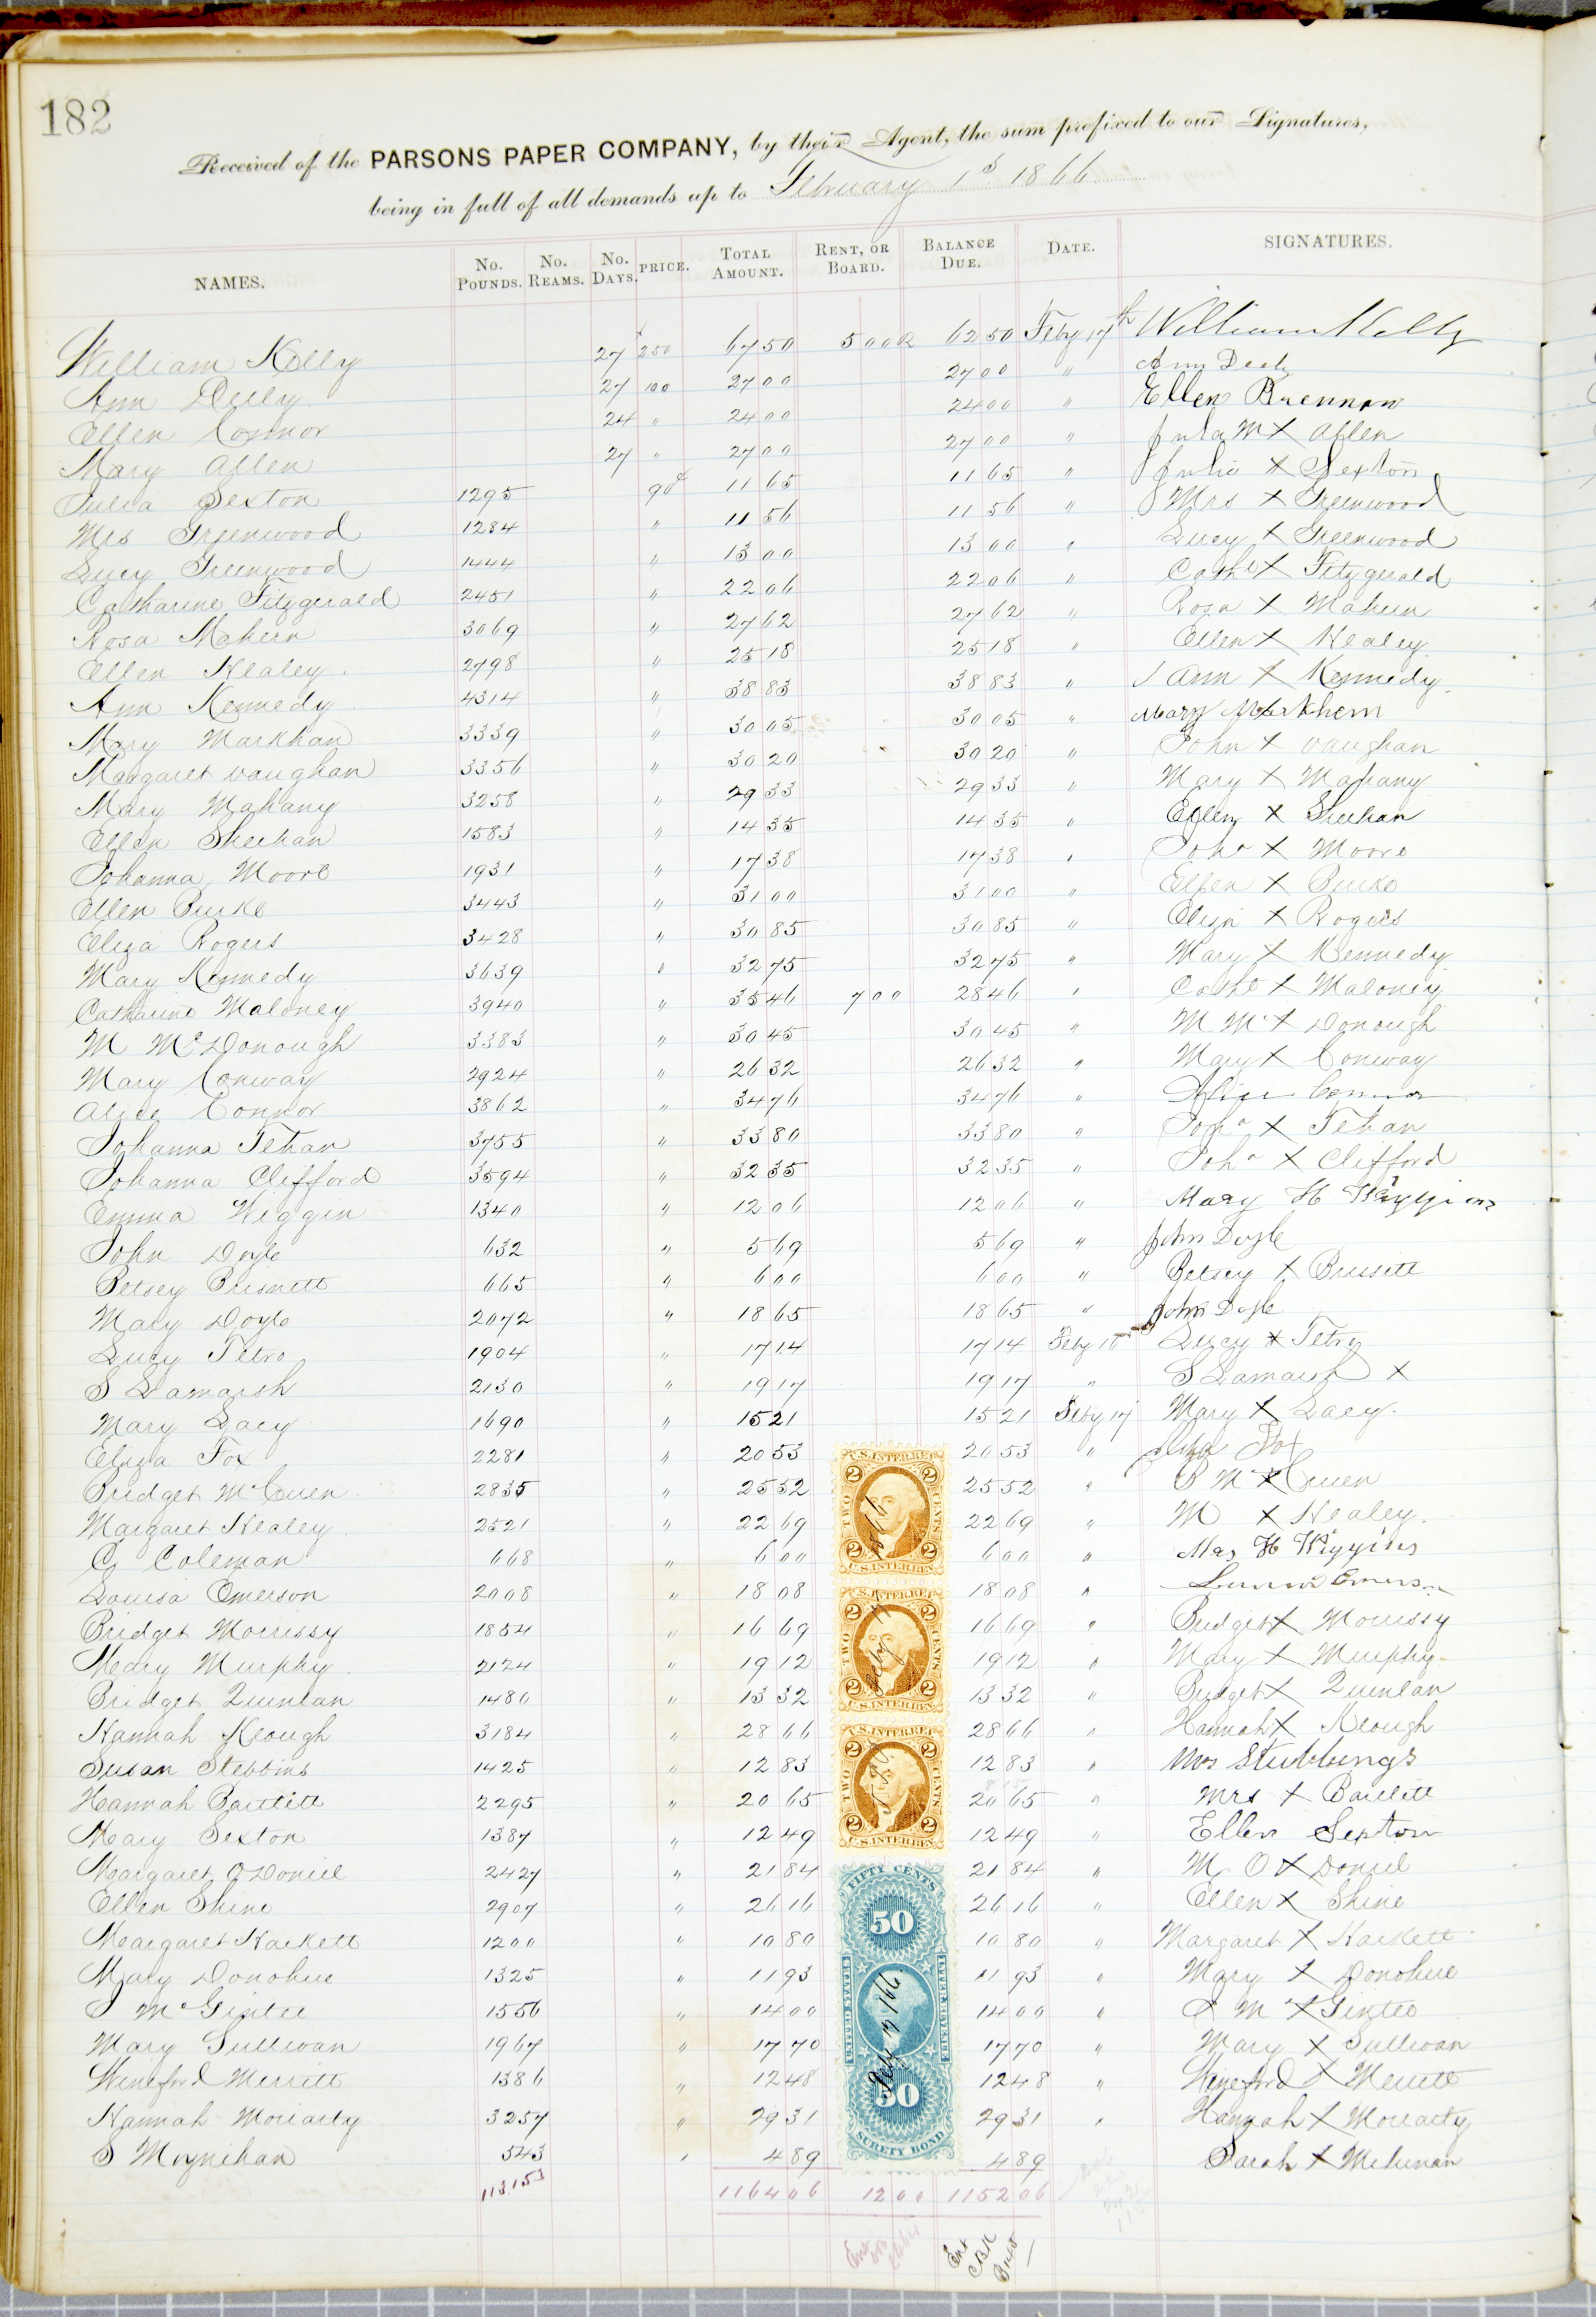 182
Received of the PARSONS PAPER COMPANY, by their Agent, the sum prefixed to our Signatures,
being in full of all demands up to February 1st 1866
NAMES. No. POUNDS. No. REAMS. No. DAYS. PRICE. TOTAL AMOUNT. RENT, OR BOARD. BALANCE DUE. DATE. SIGNATURES.
William Kelly 27 250 67 50 5 00 R 62 50 Feby 17th William Kelly
Ann Deely 27 100 27 00 27 00 " Ann Deely
Ellen Connor 24 " 24 00 24 00 " Ellen Brennan
Mary Allen 27 " 27 00 27 00 " Allen
Julia Sexton 1295 90c 11 65 11 65 " Julia X Sexton
Mrs Greenwood 1284 " 11 56 11 56 " Mrs X Greenwood
Lucy Greenwood 1444 " 13 00 13 00 " Lucy X Greenwood
Catharine Fitzgerald 2451 " 22 06 22 06 " Cathe X Fitzgerald
Rosa Mahern 3069 " 27 62 27 62 " Rosa X Mahern
Ellen Healey 2798 " 25 18 25 18 " Ellen X Healey
Ann Kennedy 4314 " 38 83 38 83 " Ann X Kennedy
Mary Markham 3339 " 30 05 30 05 " Mary Markhem
Margaret Vaughan 3356 " 30 20 30 20 " John X Vaughan
Mary Mahany 3258 " 29 33 29 33 " Mary X Mahany
Ellen Sheehan 1583 " 14 35 14 35 " Ellen X Sheehan
Johanna Moore 1931 " 17 38 17 38 " Joha X Moore
Ellen Burke 3443 " 31 00 31 00 " Ellen X Burke
Eliza Rogers 3428 " 30 85 30 85 " Eliza X Rogers
Mary Kennedy 3639 " 32 75 32 75 " Mary X Kennedy
Catharine Maloney 3940 " 35 46 7 00 28 46 " Cathe X Maloney
M McDonough 3383 " 30 45 30 45 " M Mc X Donough
Mary Conway 2924 " 26 32 26 32 " Mary X Conway
Alice Connor 3862 " 34 76 34 76 " Alice Connor
Johanna Tehan 3755 " 33 80 33 80 " Joha X Tehan
Johanna Clifford 3594 " 32 35 32 35 " Joha X Clifford
Emma Wiggin 1340 " 12 06 12 06 " Mary H Wiggins
John Doyle 632 " 5 69 5 69 " John Doyle
Betsey Brisnett 665 " 6 00 6 00 " Betsey X Brissett
Mary Doyle 2072 " 18 65 18 65 " John Doyle
Lucy Tetro 1904 " 17 14 17 14 Feby Lucy X Tetro
S Lamarsh 2130 " 19 17 19 17 " S Lamarsh X
Mary Lacy 1690 " 15 21 15 21 Feby 17 Mary X Lacy
Eliza Fox 2281 " 20 53 20 53 " Eliza Fox
Bridget McCuen 2835 " 25 52 25 52 " B Mc X Cuen
Margaret Healey 2521 " 22 69 22 69 " M X Healey
C Coleman 668 " 6 00 6 00 " Mrs H Wiggins
Louisa Emerson 2008 " 18 08 18 08 " Louisa Emerson
Bridget Morrissy 1854 " 16 69 16 69 " Bridget X Morrissy
Mary Murphy 2124 " 19 12 19 12 " Mary X Murphy
Bridget Quinlan 1480 " 13 32 13 32 " Bridget X Quinlan
Hannah Keough 3184 " 28 66 28 66 " Hannah X Keough
Susan Stebbins 1425 " 12 83 12 83 " Mrs Stubbings
Hannah Bartlett 2295 " 20 65 20 65 " Mrs X Bartlett
Mary Sexton 1387 " 12 49 12 49 " Ellen Sexton
Margaret ODoniel 2427 " 21 84 21 84 " M O X Doniel
Ellen Shine 2907 " 26 16 26 16 " Ellen X Shine
Margaret Hackett 1200 " 10 80 10 80 " Margaret X Hackett
Mary Donohue 1325 " 11 93 11 93 " Mary X Donohue
McGintee 1556 " 14 00 14 00 " Mc X Gintee
Mary Sullivan 1967 " 17 70 17 70 " Mary X Sullivan
Wineford Merritt 1386 " 12 48 12 48 " Wineford X Merritt
Hannah Moriarty 3257 " 29 31 29 31 " Hannah X Moriarty
S Moynihan 543 " 4 89 4 89 Sarah X Mehenan
113153 1164 06 12 00 1152 06
Ent
Ent
CBK
U.S. INTER REV.
TWO CENTS
2 2 2 2
1866
U.S. INTER REV.
U.S. INTER REV.
TWO CENTS
2 2 2 2
Feby 17
U.S. INTER REV.
U.S. INTER REV.
TWO CENTS
2 2 2 2
U.S. INTER REV.
FIFTY CENTS
50
UNITED STATES
INTER. REVENUE
Feby 17 /66.
50
SURETY BOND